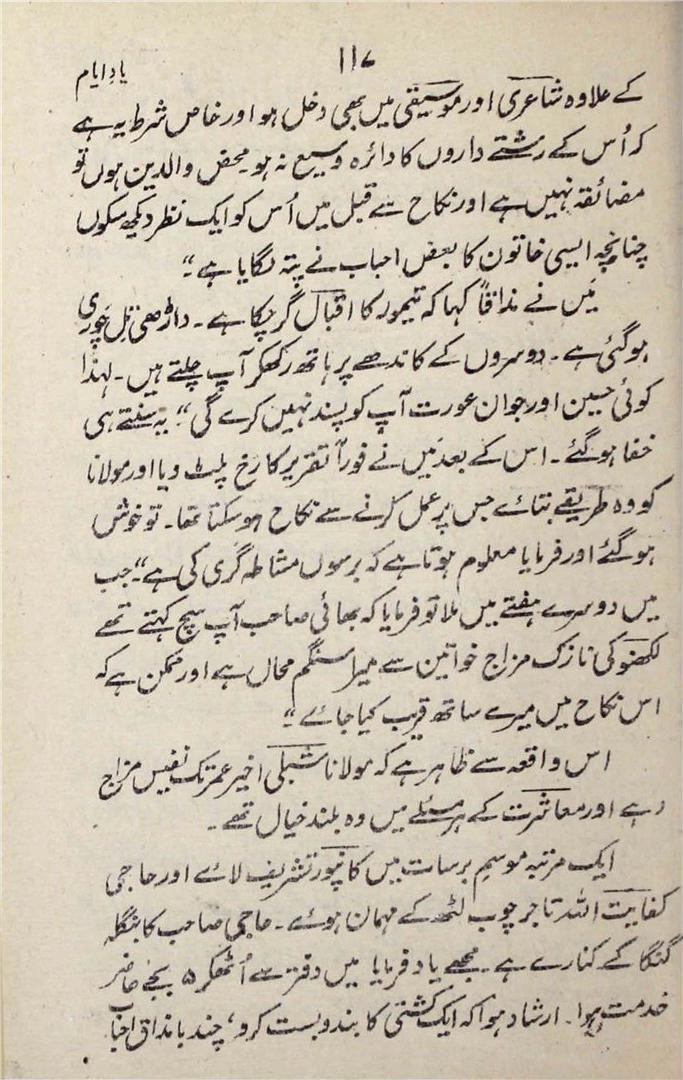 ۱۱۷
یادِ ایام
کے علاوہ شاعری اور موسیقی میں بھی دخل ہو اور خاص شرط یہ ہے
کہ اُس کے رشتے داروں کا دائرہ وسیع نہ ہو۔ محض والدین ہوں تو
مضائقہ نہیں ہے اور نکاح سے قبل میں اُس کو ایک نظر دیکھ سکوں
چنانچہ ایسی خاتون کا بعض احباب نے پتہ لگایا ہے"
میں نے مذاقاً کہا کہ تیمور کا اقبال گر چکا ہے۔ داڑھی تِل چوری
ہوگئی ہے۔ دوسروں کے کاندھے پر ہاتھ رکھکر آپ چلتے ہیں۔ لہٰذا
کوئی حسین اور جوان عورت آپ کو پسند نہیں کرے گی" یہ سنتے ہی
خفا ہوگئے۔ اس کے بعد میں نے فوراً تقریر کا رخ پلٹ دیا اور مولانا
کو وہ طریقے بتائے جس پر عمل کرنے سے نکاح ہو سکتا تھا۔ تو خوش
ہوگئے اور فرمایا معلوم ہوتا ہے کہ برسوں مشاطہ گری کی ہے" جب
میں دوسرے ہفتے میں ملا تو فرمایا کہ بھائی صاحب آپ سچ کہتے تھے
لکھنؤ کی نازک مزاج خواتین سے میرا سنگم محال ہے اور ممکن ہے کہ
اس نکاح میں میرے ساتھ فریب کیا جائے"
اس واقعہ سے ظاہر ہے کہ مولانا شبلی اخیر عمر تک نفیس مزاج
رہے اور معاشرت کے ہر مسئلے میں وہ بلند خیال تھے۔
ایک مرتبہ موسم برسات میں کانپور تشریف لائے اور حاجی
کفایت اللہ تاجر چوب لٹھ کے مہمان ہوئے۔ حاجی صاحب کا بنگلہ
گنگا کے کنارے ہے۔ مجھے یاد فرمایا میں دفتر سے اُٹھکر ۵ بجے حاضر
خدمت ہوا۔ ارشاد ہوا کہ ایک کشتی کا بندوبست کرو، چند بامذاق احباب